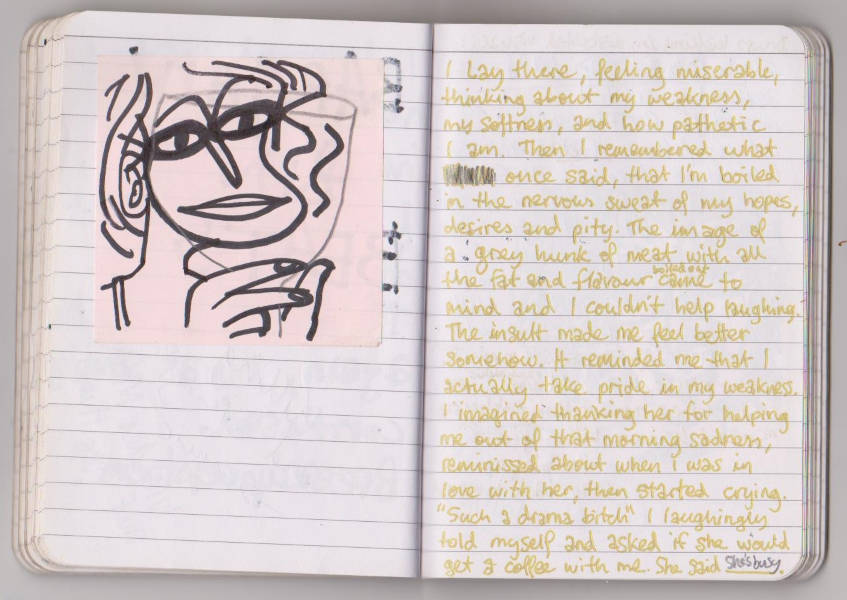 I lay there, feeling miserable,
thinking about my weakness,
my softness, and how pathetic
I am. Then I remembered what
once said, that I'm boiled
in the nervous sweat of my hopes,
desires and pity. The image of
a grey hunk of meat with all
the fat and flavour boiled out came to
mind and I couldn't help laughing.
The insult made me feel better
somehow. It reminded me that I
actually take pride in my weakness.
I imagined thanking her for helping
me out of that morning sadness,
reminissed about when I was in
love with her, then started crying.
"Such a drama bitch" I laughingly
told myself and asked if she would
get a coffee with me. She said she's busy.